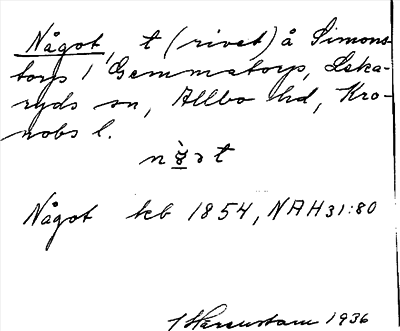 Något, t (rivet) å Simons-
torp / Gemmatorp, Leka-
ryds sn, Allbo hd, Kro-
nobs l.
Något kb 1854, NAH31:80
1936